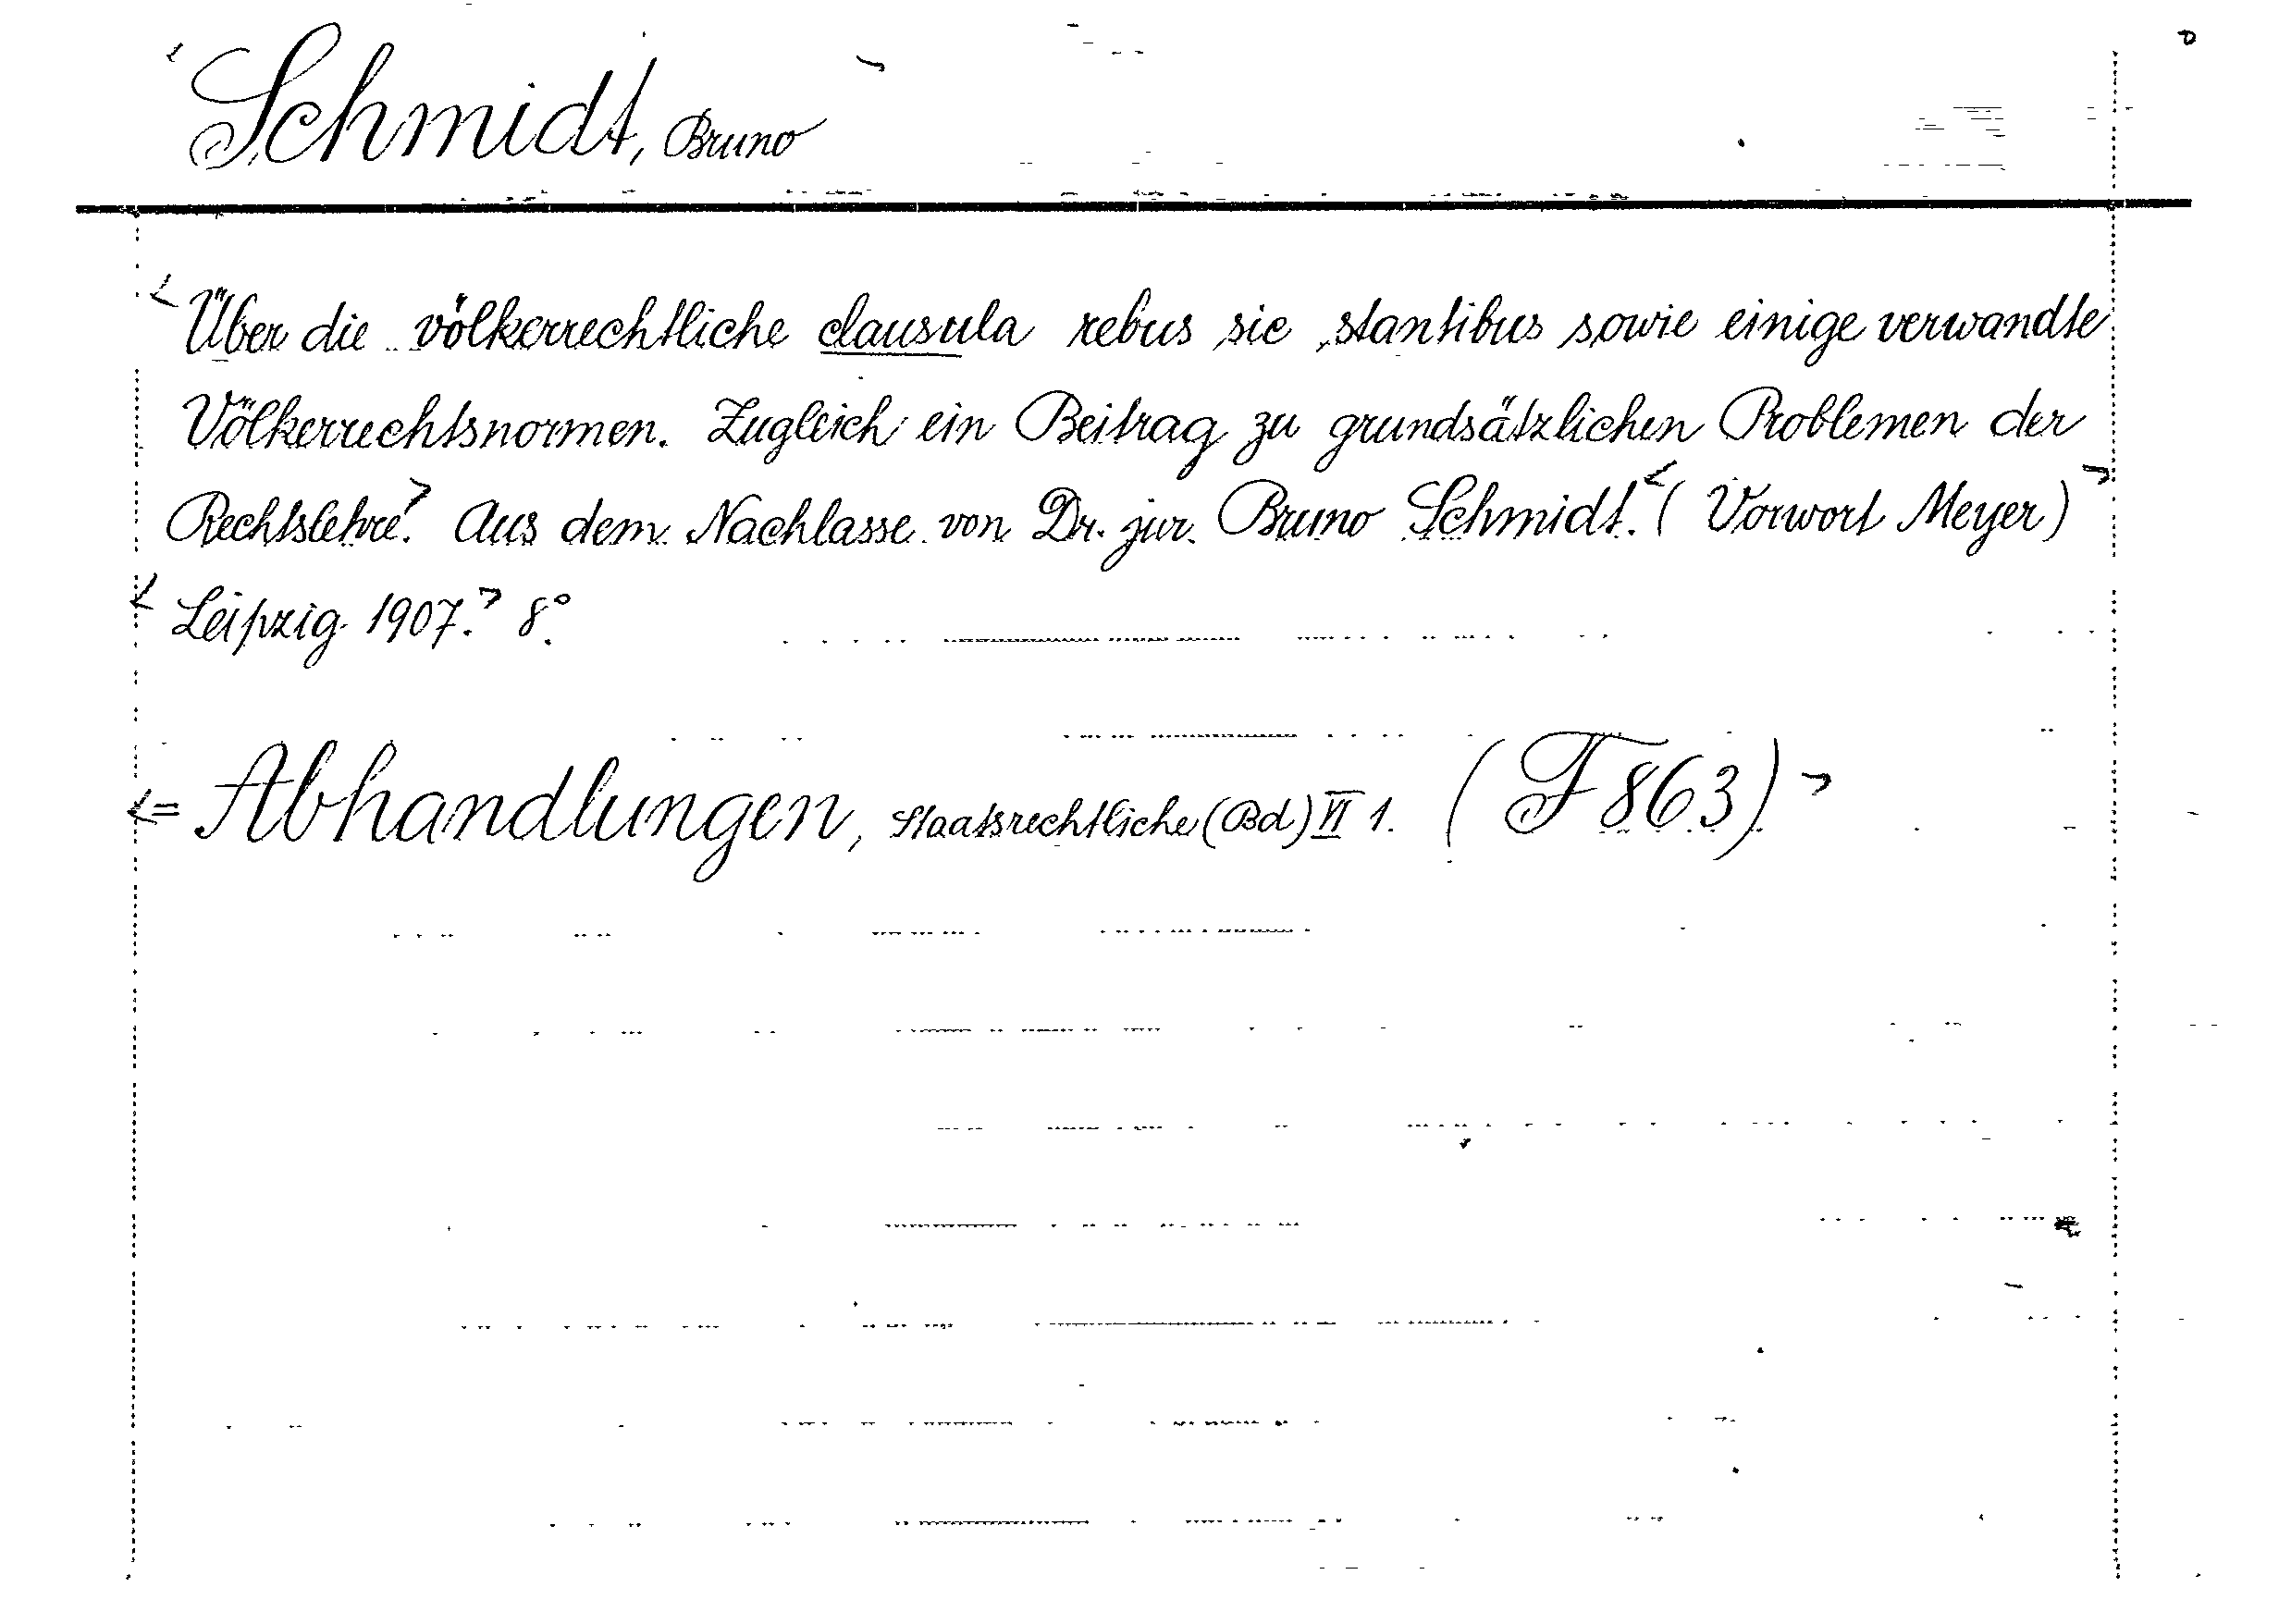 Schmidt, Bruno
Über die völkerrechtliche clausula rebus sic stantibus sowie einige verwandte
Völkerrechtsnormen. Zugleich ein Beitrag zu grundsätzlichen Problemen der
Rechtslehre. Aus dem Nachlasse von Dr. jur. Bruno Schmidt. (Vorwort Meyer)
Leipzig 1907. 8°.
= Abhandlungen, Staatsrechtliche (Bd) VI 1. (F 863)